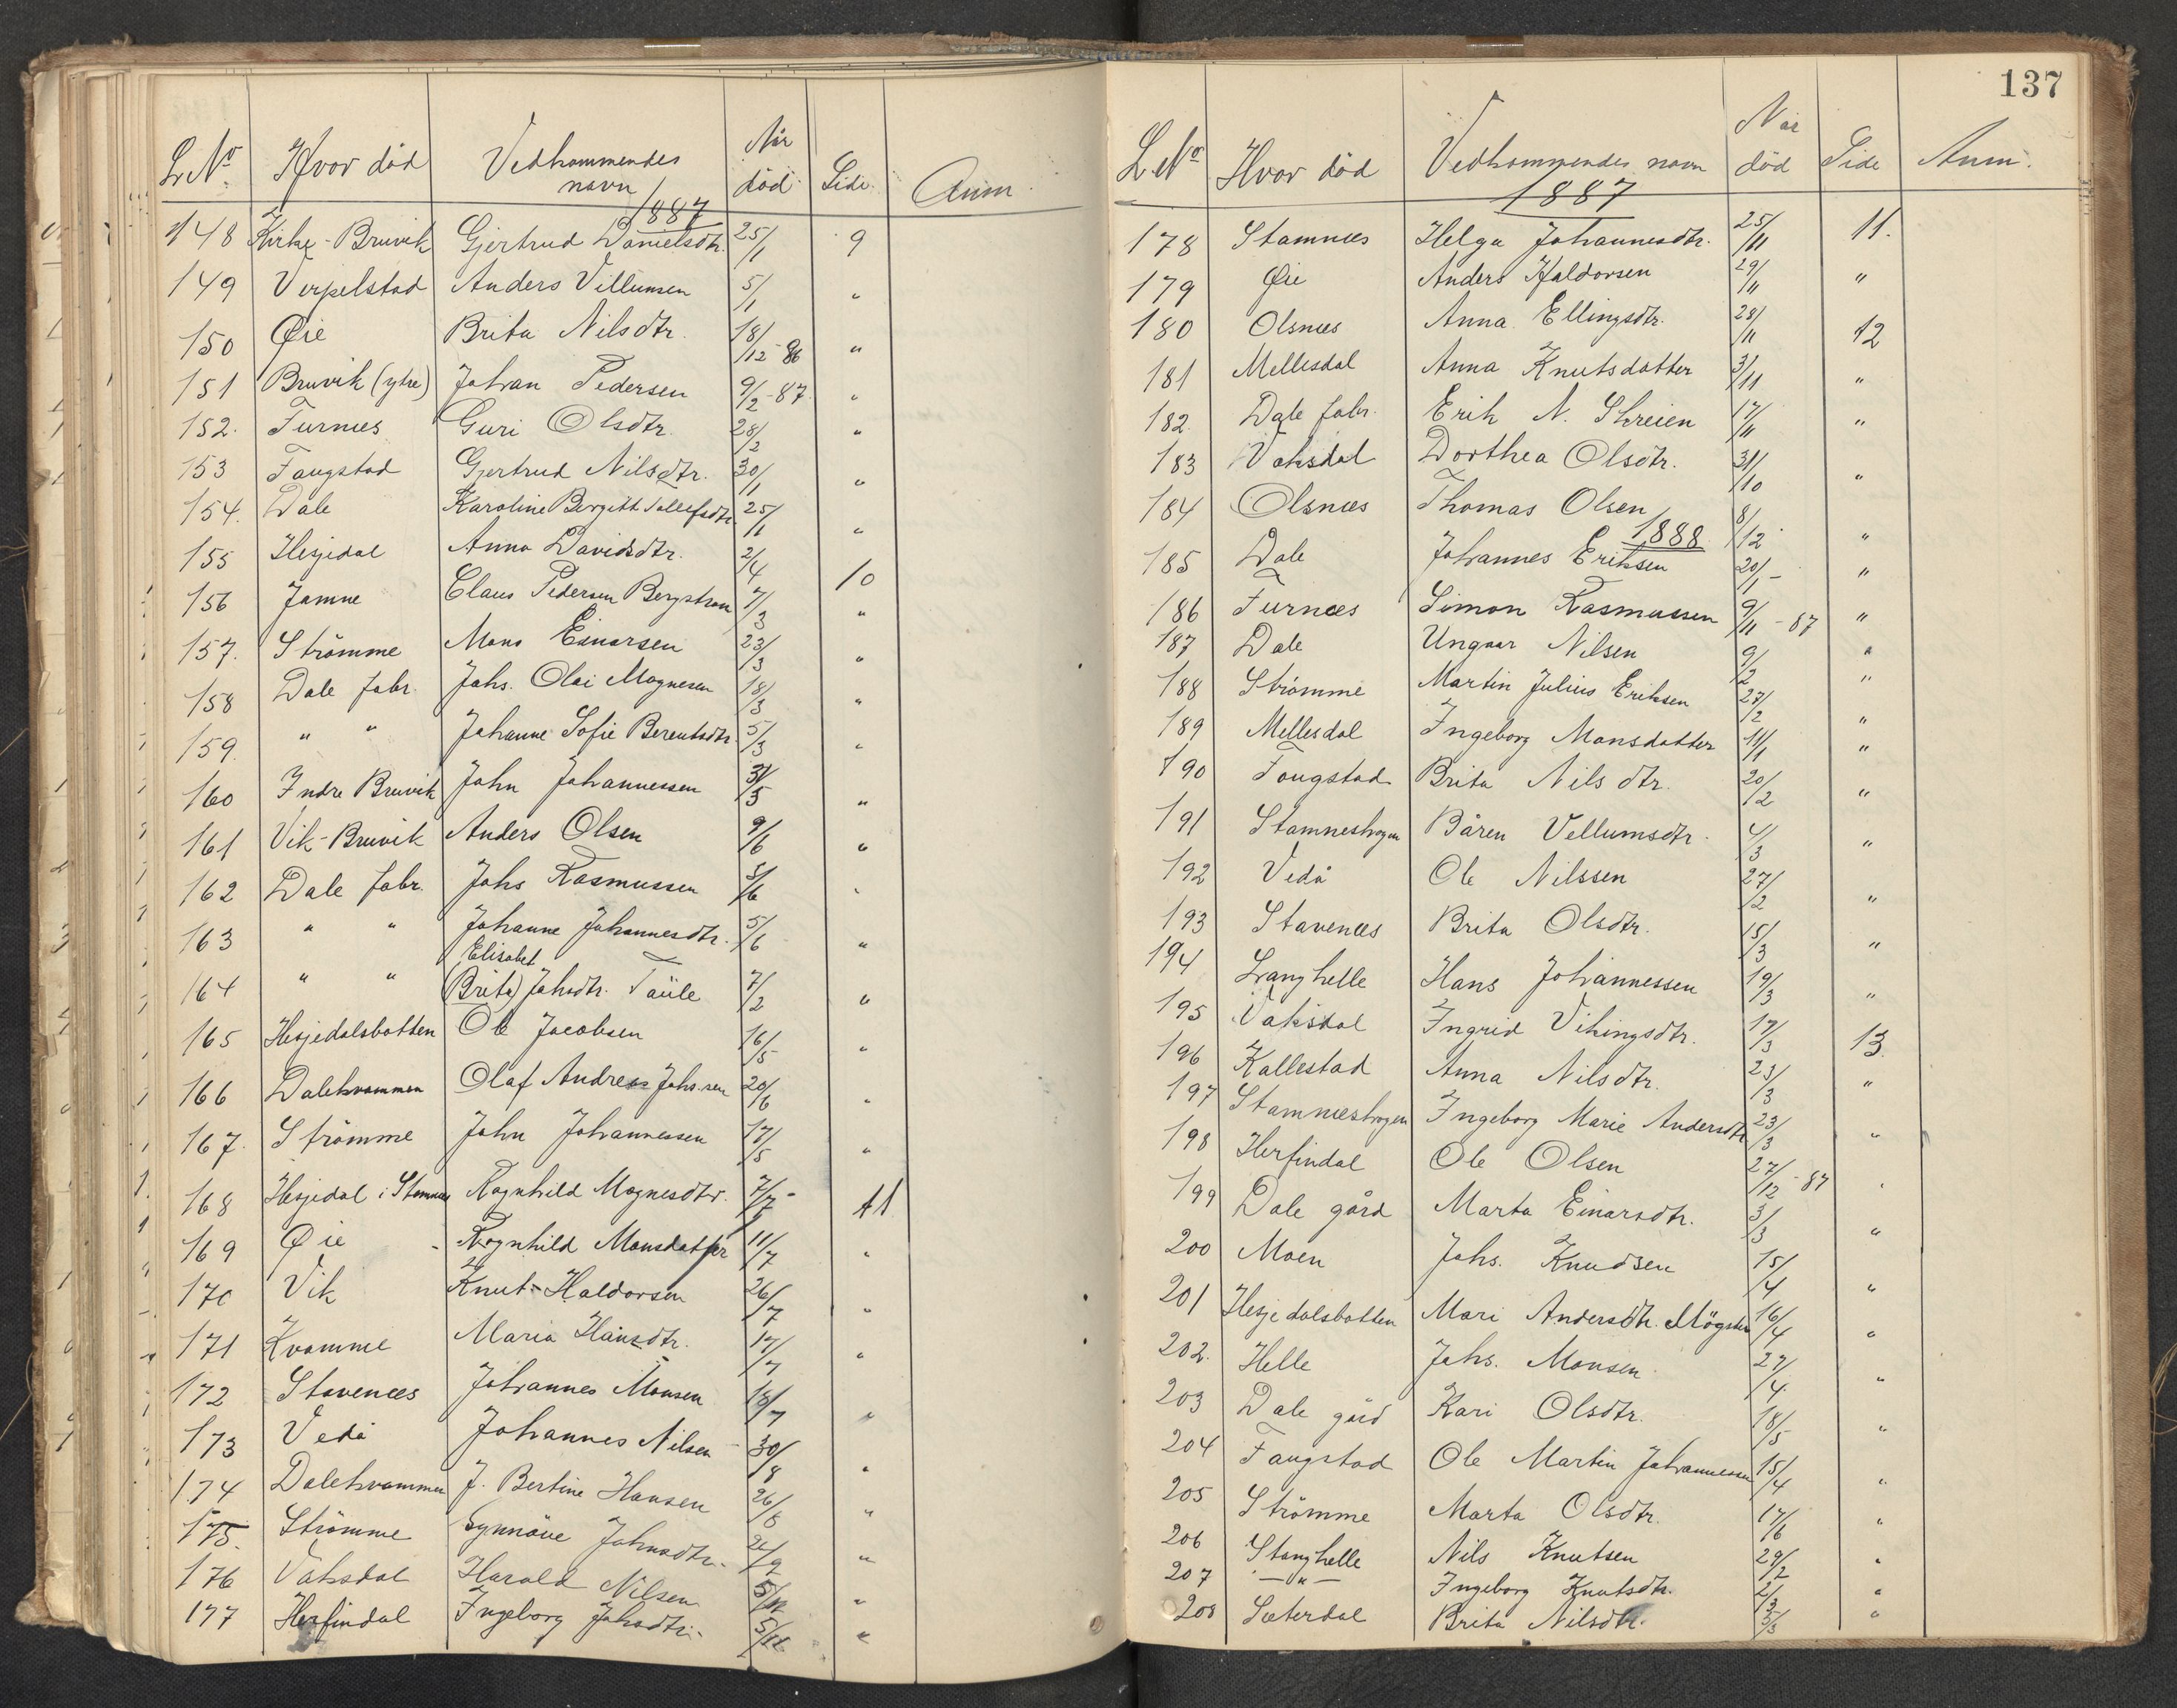 L. No Hvor död Vedkommendes navn Når död Side Anm.
1887
148 Kirke-Bruvik Gjertrud Danielsdtr. 25/1 9
149 Virpelstad Anders Villumsen 5/1 "
150 Øie Brita Nilsdtr. 18/12-86 "
151 Bruvik (ytre) Johan Pedersen 9/2-87. "
152. Furnæs Guri Olsdtr. 28/2 "
153 Fangstad Gjertrud Nilsdtr. 30/1 "
154. Dale Karoline Bergitt Tollefsdtr. 25/1 "
155 Hesjedal Anna Davidsdtr. 2/4 10
156 Jamne Claus Pedersen Bergstrøm 7/3 "
157. Strömme Mons Einarsen 23/3 "
158 Dale fabr. Johs. Olai Magnesen 18/3 "
159. " " Johanne Sofie Berentsdtr. 5/3 "
160 Indre Bruvik John Johannessen 31/5 "
161 Vik-Bruvik Anders Olsen 9/6 "
162 Dale fabr. Johs Rasmussen 5/6 "
163 " " Johanne Johannesdtr. 5/6 "
164 " " Elisabet (Brita) Johsdtr. 7/2 "
165 Hesjedalsbotten Ole Jacobsen 16/5 "
166 Dalekvammen Olaf Andreas Johs.sen 20/6 "
167. Strömme John Johannessen 17/5 "
168 Hesjedal i Stamnæs Ragnhild Magnesdtr. 7/7 11
169 Øie Ragnhild Monsdatter 11/7 "
170 Vik Knut Haldorsen 26/7 "
171 Kvamme Maria Hansdtr. 17/7 "
172 Stavenæs Johannes Monsen 18/7 "
173 Vedå Johannes Nilsen 30/8 "
174 Dalekvammen J. Bertine Hansen 26/8 "
175. Strömme Synnöve Johnsdtr. 21/9 "
176 Vaksdal Harald Nilsen "
177 Herfindal Ingeborg Johsdtr. "
137
L. No Hvor död Vedkommendes navn Når död Side Anm.
1887
178 Stamnæs Helga Johannesdtr. 25/11 11.
179 Øie Anders Haldorsen 29/11 "
180 Olsnæs Anna Ellingsdtr. 28/11 12
181 Mellesdal Anna Knutsdatter 3/11 "
182. Dale fabr. Erik N. Skreien 17/11 "
183 Vaksdal Dorthea Olsdtr. 31/10 "
184 Olsnæs Thomas Olsen 8/12 "
1888
185 Dale Johannes Eriksen 20/1- "
186 Furnæs Simon Rasmussen 9/11-87 "
187 Dale Ungaar Nilsen 9/2 "
188 Strömme Martin Julius Eriksen 27/2 "
189 Mellesdal Ingeborg Monsdatter 11/1 "
190 Fangstad Brita Nilsdtr. 20/2 "
191 Stamneskrogen Båren Vellumsdtr. 4/3 "
192 Vedå Ole Nilssen 27/2 "
193 Stavenæs Brita Olsdtr. 15/3 "
194 Langhelle Hans Johannessen 19/3 "
195 Vaksdal Ingrid Vikingsdtr. 17/3 13
196 Kallestad Anna Nilsdtr. 23/3 "
197 Stamnæskrogen Ingeborg Marie Andersdtr 23/3 "
198 Herfindal Ole Olsen 27/12-87 "
199 Dale gård Marta Einarsdtr. 3/3 "
200 Moen Johs. Knudsen 15/4 "
201 Hesjedalsbotten Mari Andersdtr. Mögster 16/4 "
202. Helle Johs. Monsen 27/4 "
203 Dale gård Kari Olsdtr. 18/5 "
204 Fangstad Ole Martin Johannessen 15/4 "
205 Strömme Marta Olsdtr. 17/6 "
206 Stanghelle Nils Knutsen 29/2 "
207 —"— Ingeborg Knutsdtr. 2/3 "
208 Sæterdal Brita Nilsdtr. 5/5 "